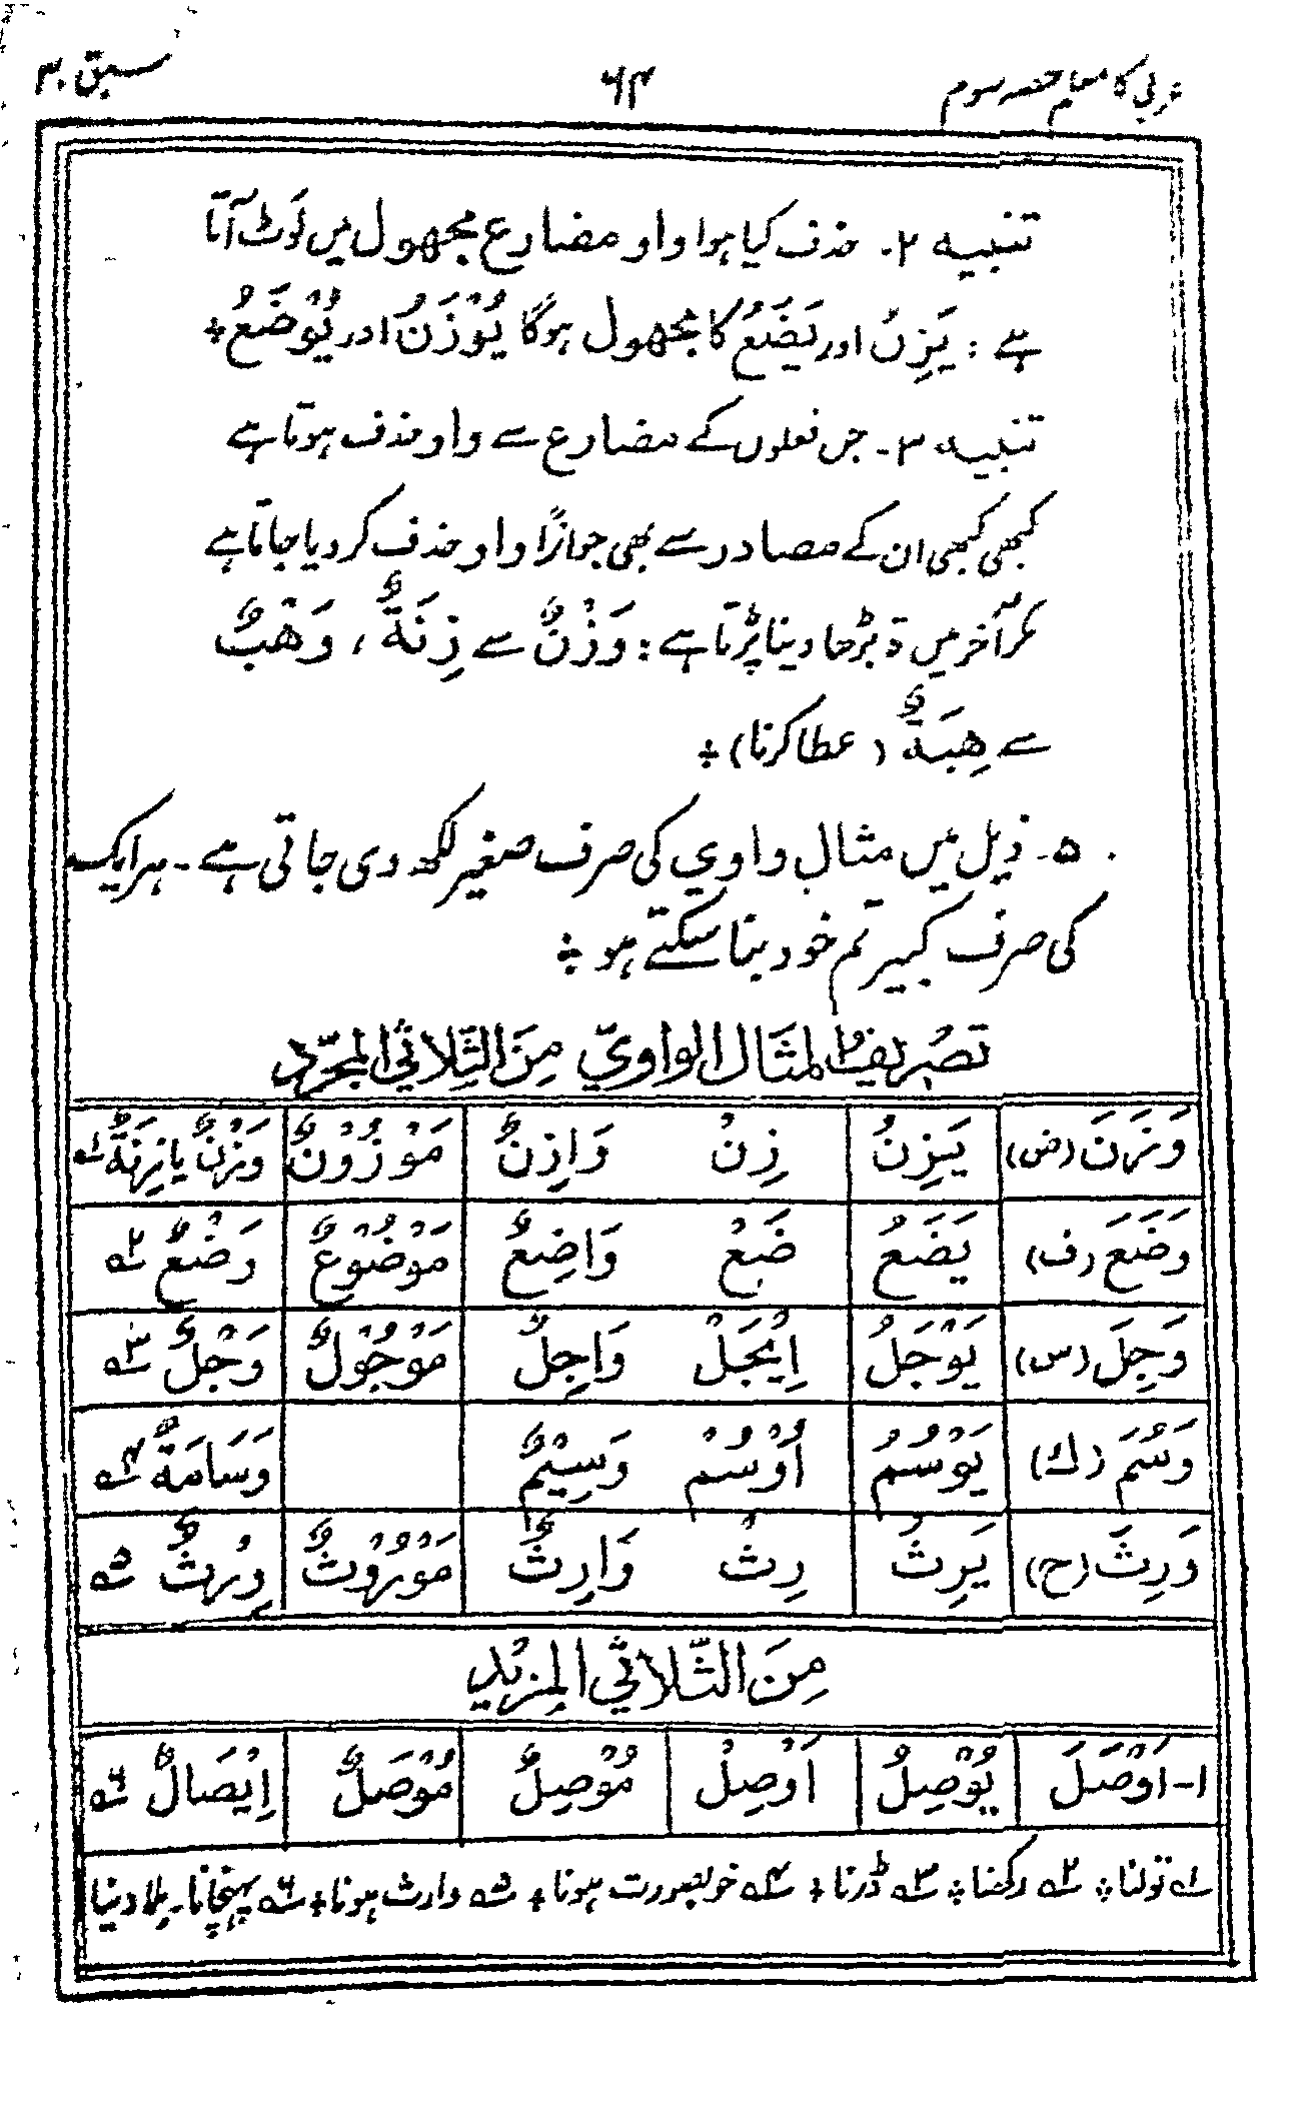 عربی کا معلم حصہ سوم ۶۴ سبق ۳۰
تنبیہ ۲۔ حذف کیا ہوا واو مضارع مجھول میں لَوٹ آتا
ہے : یَزِنُ اور یَضَعُ کا مجھول ہوگا یُوْزَنُ اور یُوْضَعُ +
تنبیہ ۳۔ جن فعلوں کے مضارع سے واو حذف ہوتا ہے
کبھی کبھی ان کے مصادر سے بھی جوازًا واو حذف کر دیا جاتا ہے
مگر آخر میں ة بڑھا دینا پڑتا ہے : وَزْنٌ سے زِنَةٌ ، وَهْبٌ
سے هِبَةٌ ( عطا کرنا) +
۵۔ ذیل میں مثال واوي کی صرف صغیر لکھ دی جاتی ہے ۔ ہر ایک
کی صرف کبیر تم خود بنا سکتے ہو +
تَصْرِيفُ الْمِثَال الواويّ مِنَ الثُّلاثي المجرّد
وَزَنَ (ض) يَزِنُ زِنْ وَازِنٌ مَوْزُوْنٌ وَزْنٌ یا زِنَةٌ ؎۱
وَضَعَ (ف) يَضَعُ ضَعْ وَاضِعٌ مَوْضُوْعٌ وَضْعٌ ؎۲
وَجِلَ (س) يَوْجَلُ اِيْجَلْ وَاجِلٌ مَوْجُوْلٌ وَجْلٌ ؎۳
وَسُمَ (ك) يَوْسُمُ اُوْسُمْ وَسِيْمٌ وَسَامَةٌ ؎۴
وَرِثَ (ح) يَرِثُ رِثْ وَارِثٌ مَوْرُوْثٌ وِرْثٌ ؎۵
مِنَ الثّلاثي المزيد
۱- اَوْصَلَ يُوْصِلُ اَوْصِلْ مُوْصِلٌ مُوْصَلٌ اِيْصَالٌ ؎۶
؎۱ تولنا + ؎۲ رکھنا + ؎۳ ڈرنا + ؎۴ خوبصورت ہونا + ؎۵ وارث ہونا + ؎۶ پہنچانا ۔ ملا دینا